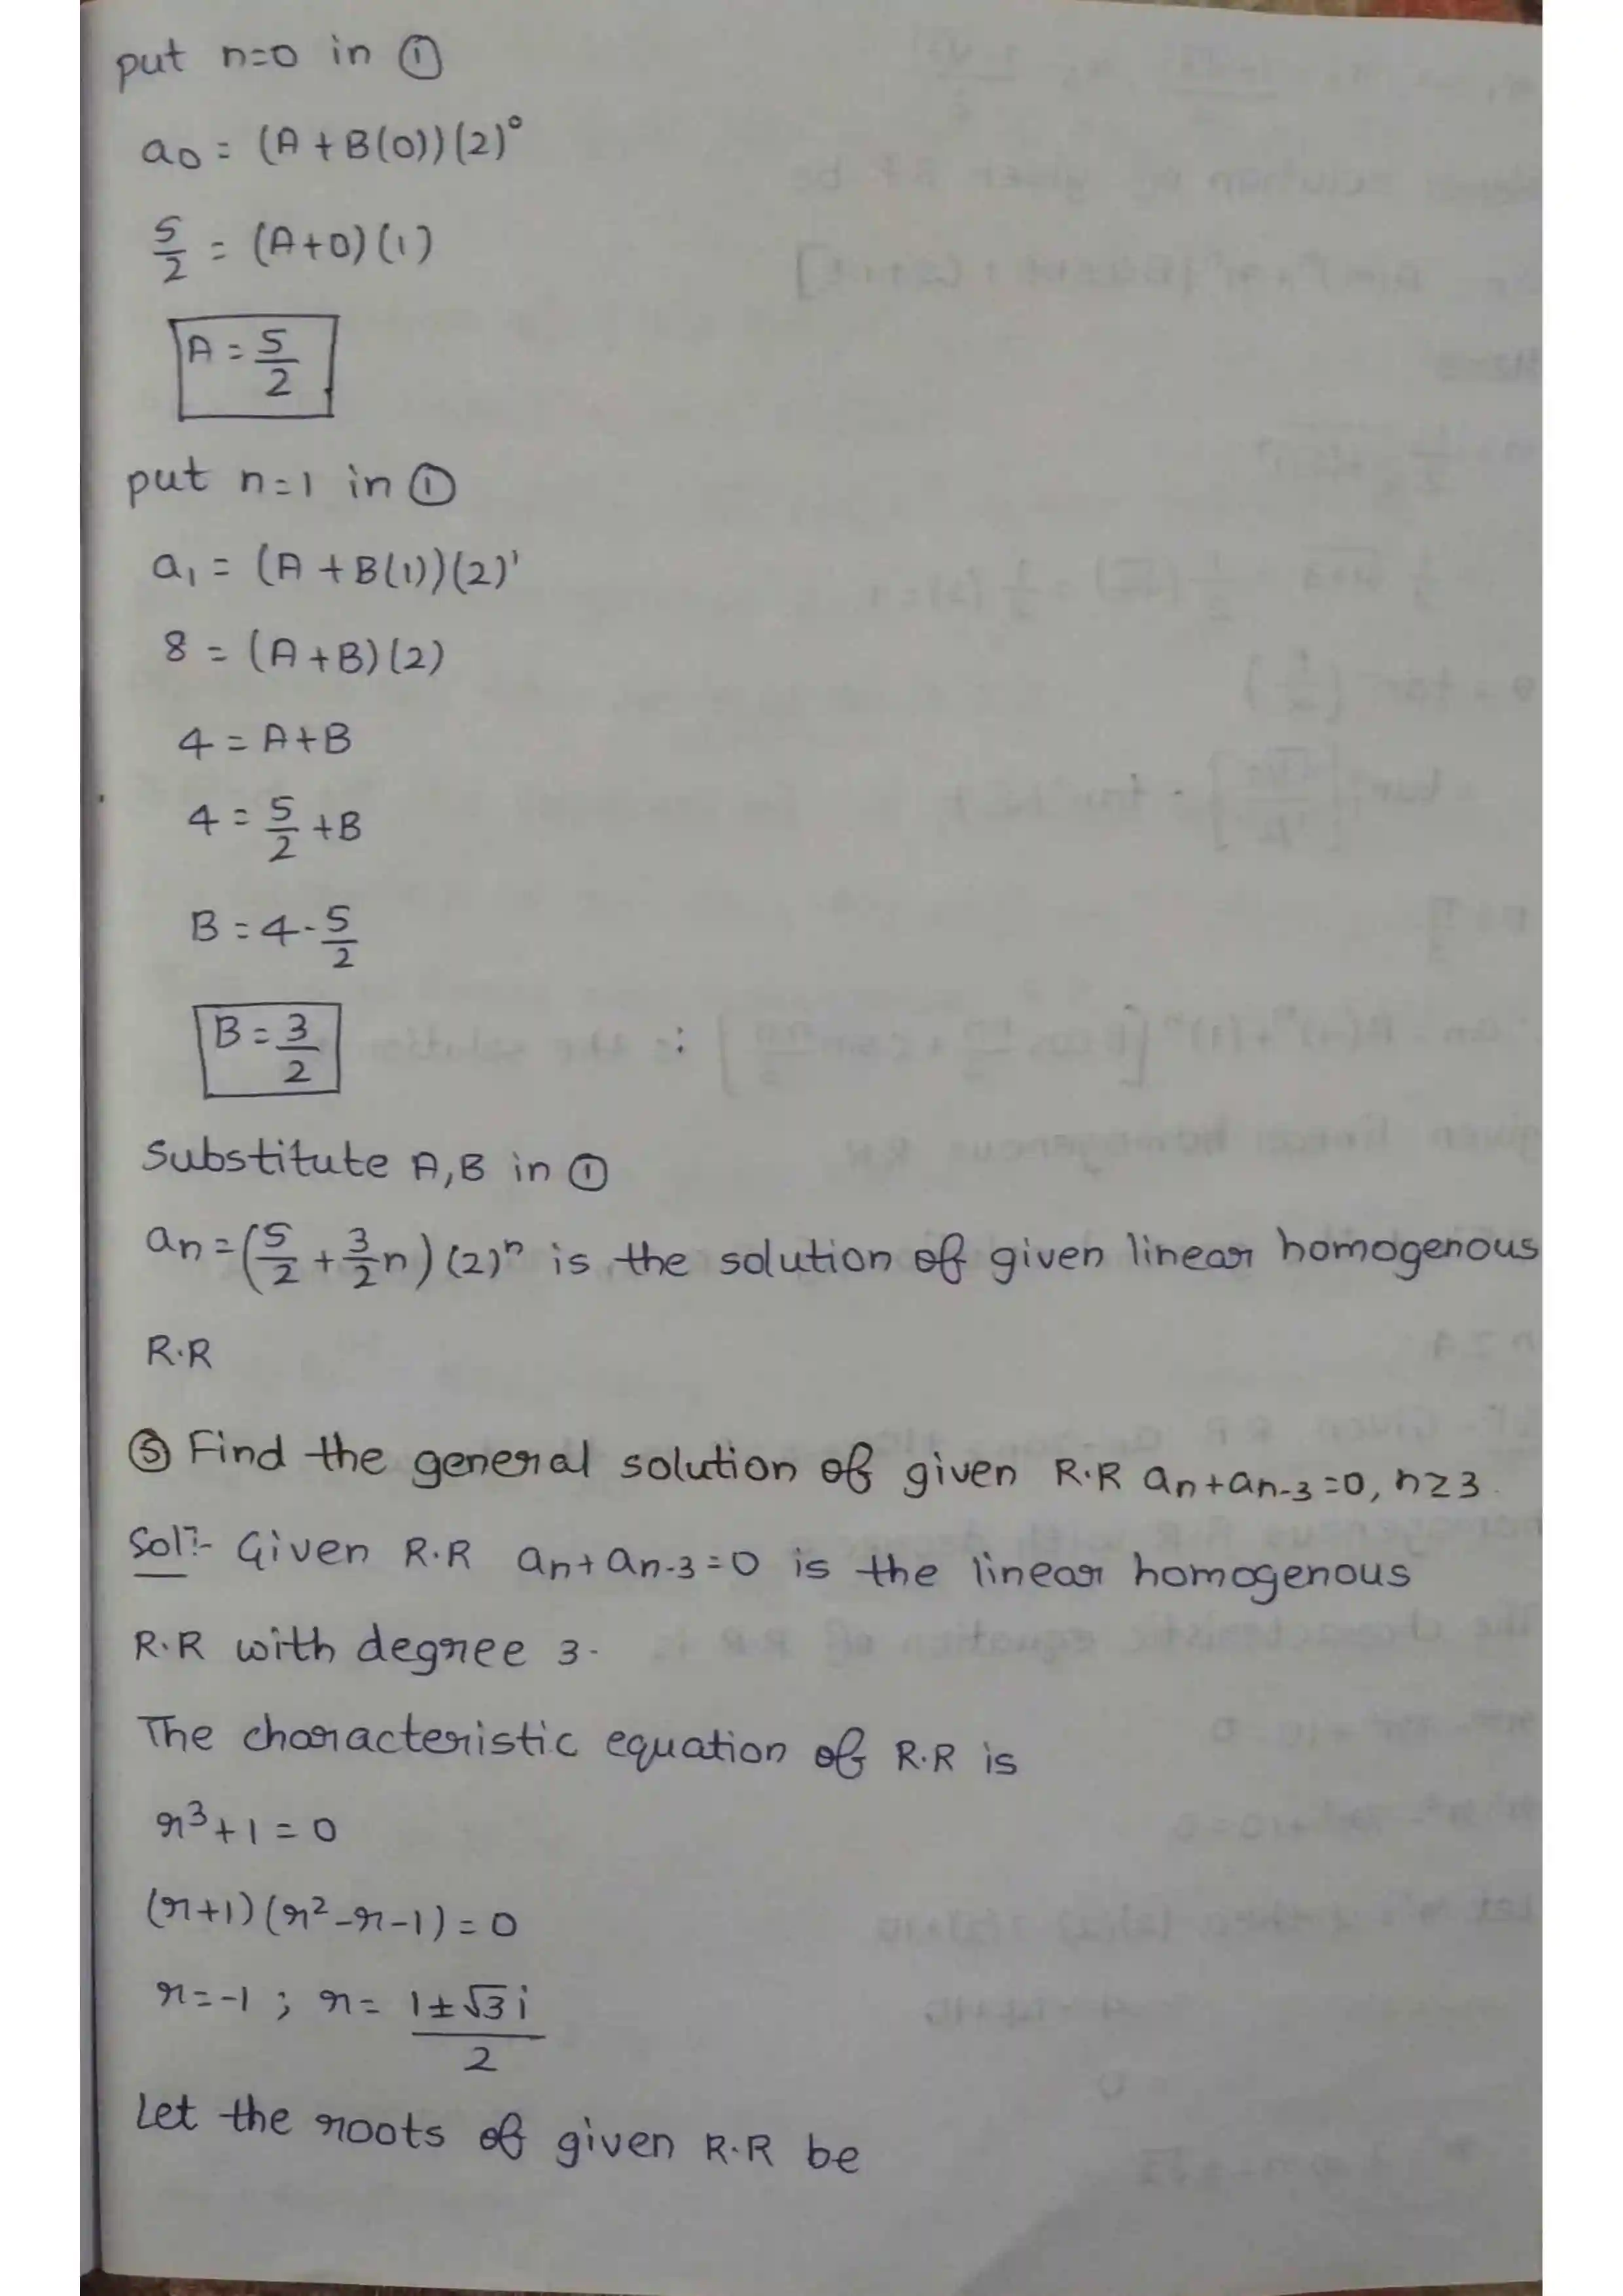 put n=0 in ①
a0 = (A + B(0))(2)⁰
5/2 = (A+0)(1)
A = 5/2
put n=1 in ①
a₁ = (A + B(1))(2)¹
8 = (A+B)(2)
4 = A+B
4 = 5/2 + B
B = 4 - 5/2
B = 3/2
Substitute A,B in ①
an = (5/2 + 3/2 n) (2)ⁿ is the solution of given linear homogenous
R.R
⑤ Find the general solution of given R.R an+an-3=0, n≥3.
Sol:- Given R.R an+an-3=0 is the linear homogenous
R.R with degree 3.
The characteristic equation of R.R is
r³+1=0
(r+1)(r²-r-1)=0
r=-1; r= 1±√3i/2
Let the roots of given R.R be